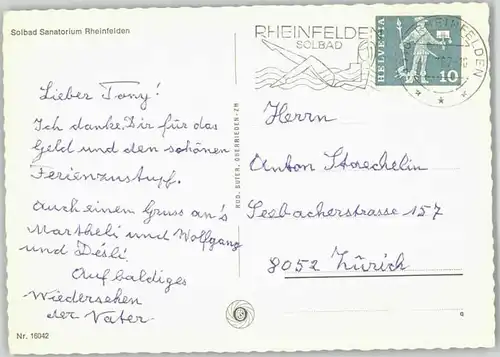 Solbad Sanatorium Rheinfelden
RHEINFELDEN
SOLBAD
HELVETIA
10
RHEINFELDEN
Lieber Tony!
Ich danke Dir für das
Geld und den schönen
Ferienzustupf.
Auch einem Gruss an's
Martheli und Wolfgang
und Désli.
Auf baldiges
Wiedersehen
der Vater.
RUD. SUTER, OBERRIEDEN-ZH
Herrn
Anton Staechelin
Seebacherstrasse 157
8052 Zürich
Nr. 16042